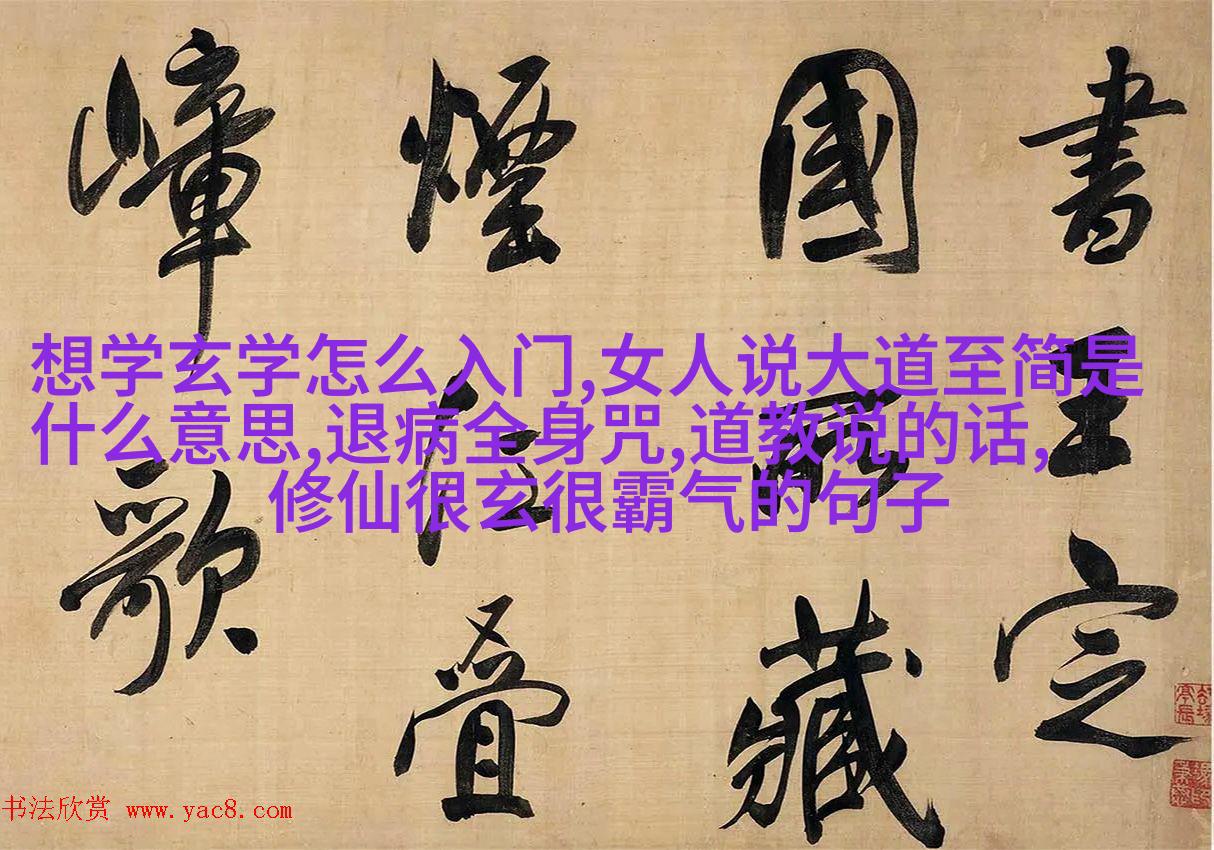 書王定
國所藏
煙江疊
嶂歌
想学玄学怎么入门,女人说大道至简是
什么意思,退病全身咒,道教说的话,
修仙很玄很霸气的句子
书法欣赏 www.yac8.com